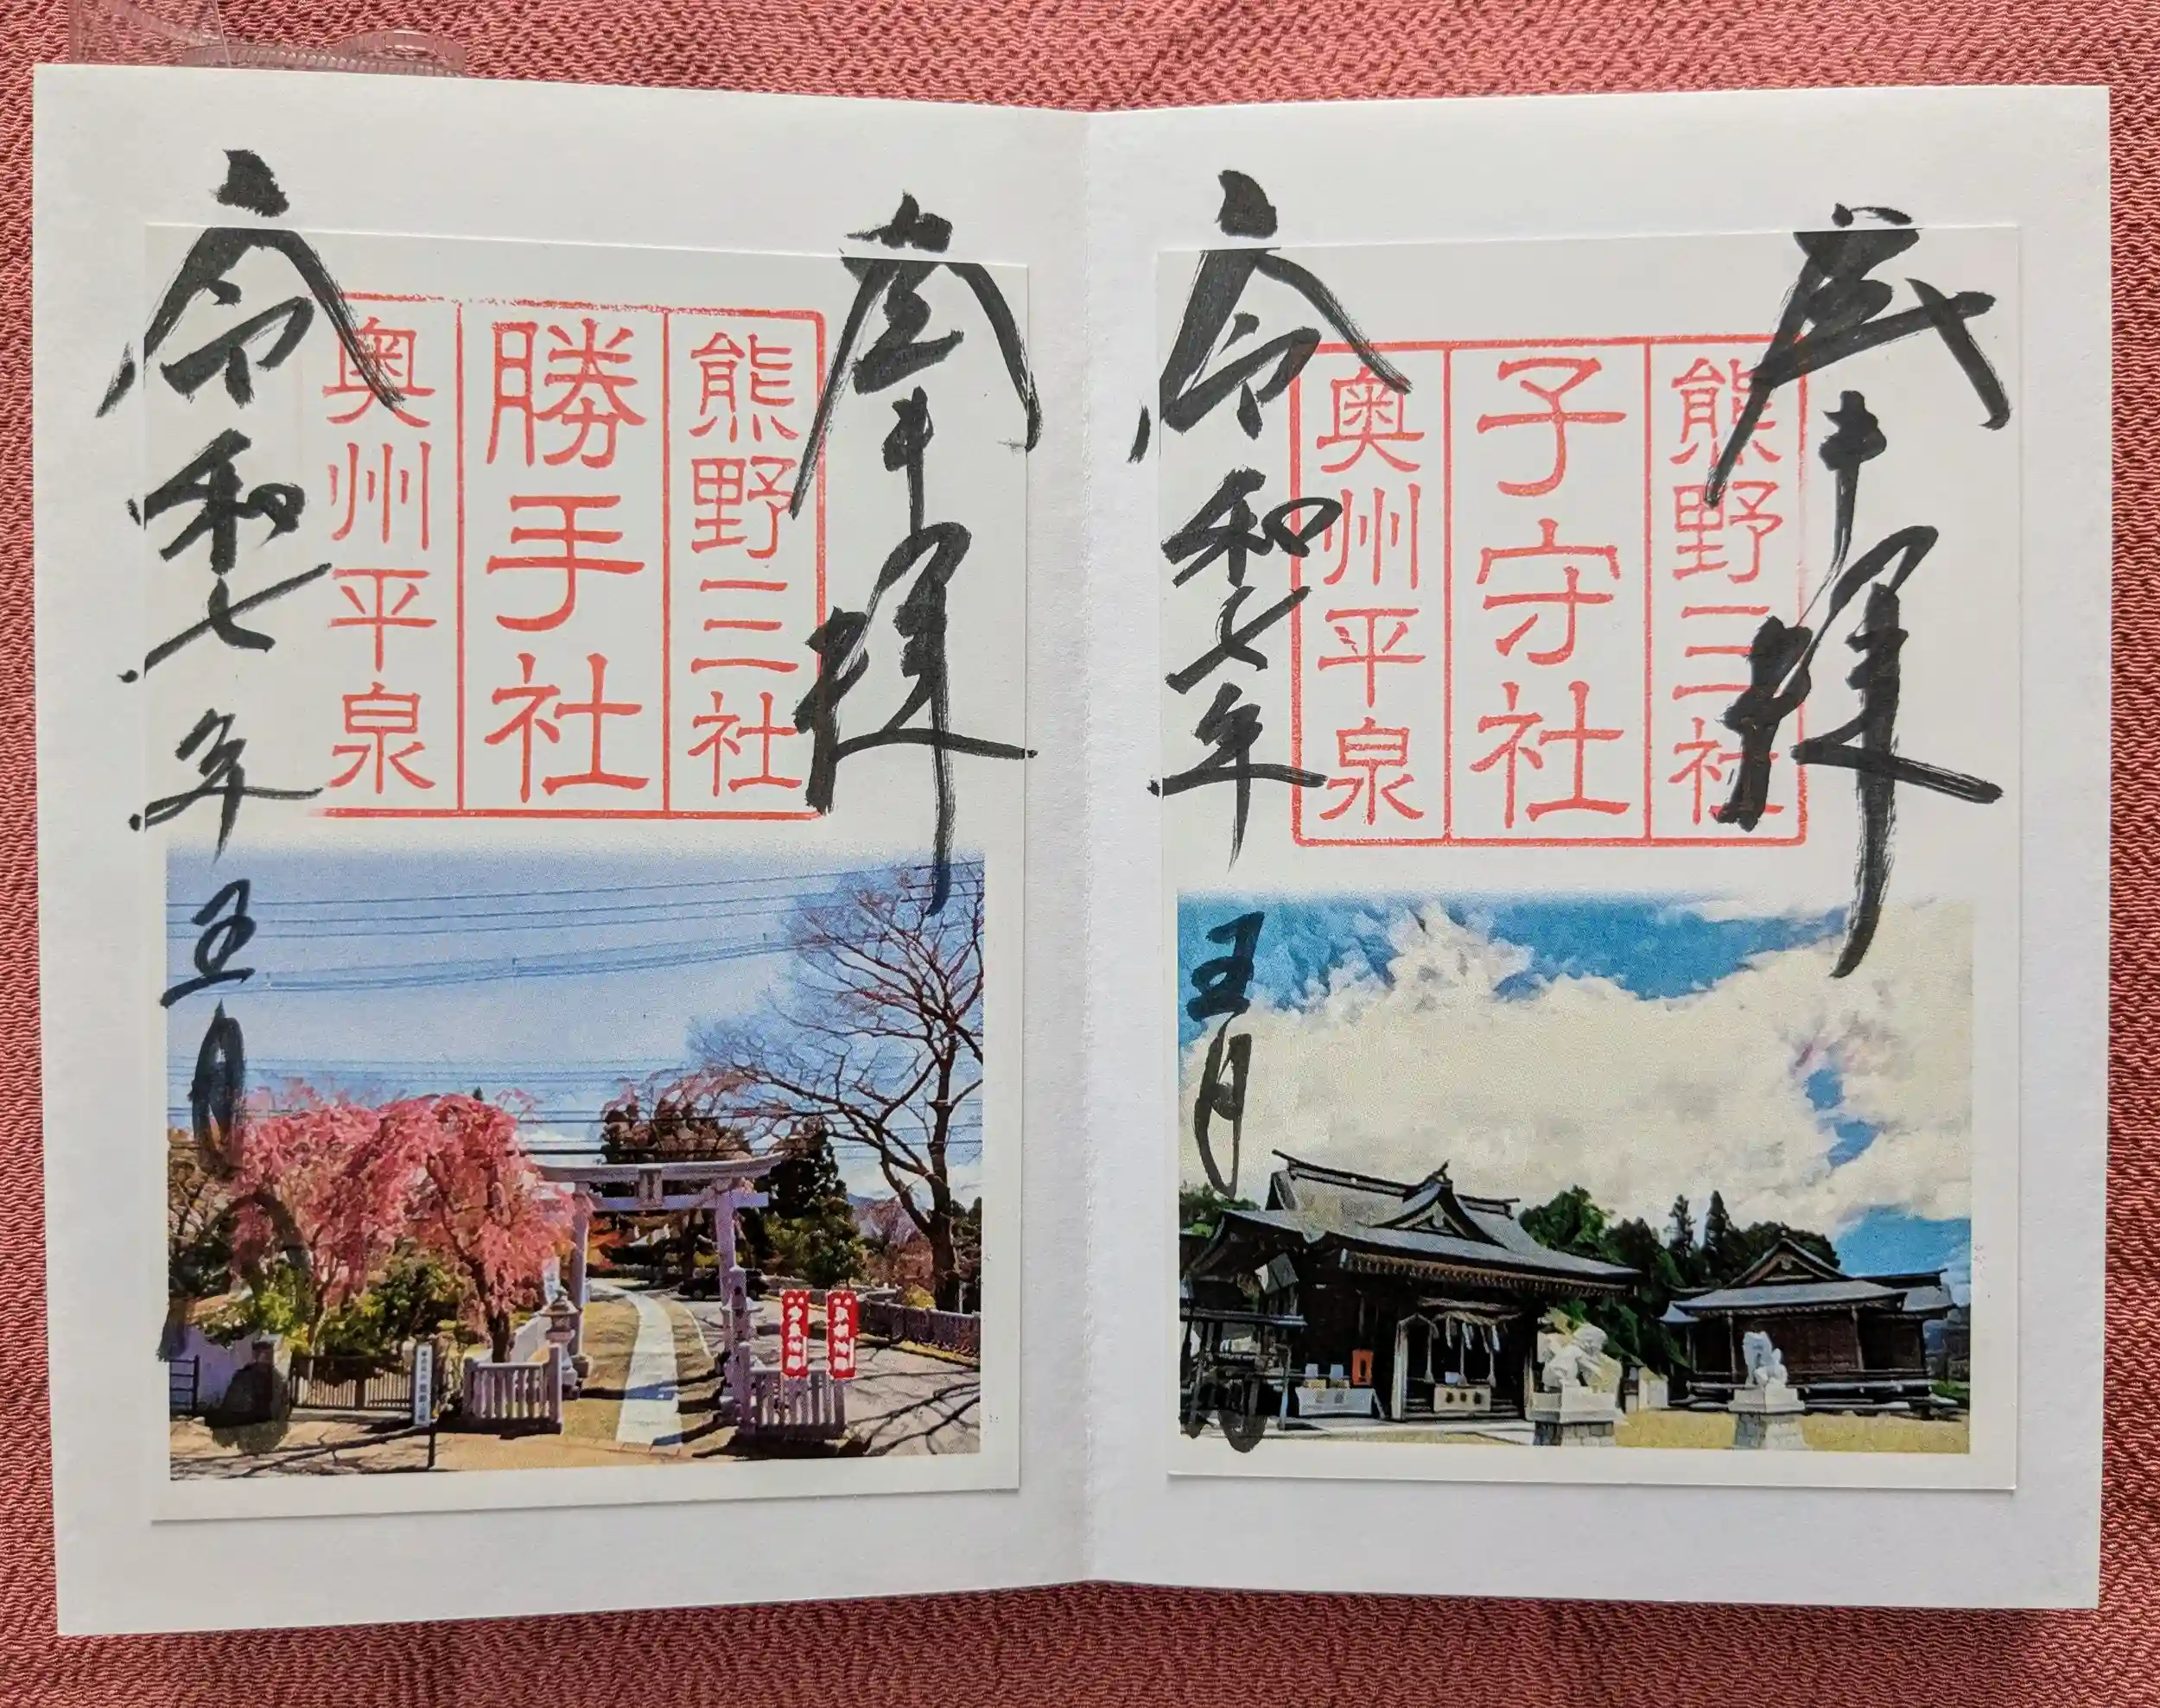 奉拝
熊野三社
子守社
奥州平泉
令和七年五月
奉拝
熊野三社
勝手社
奥州平泉
令和七年五月